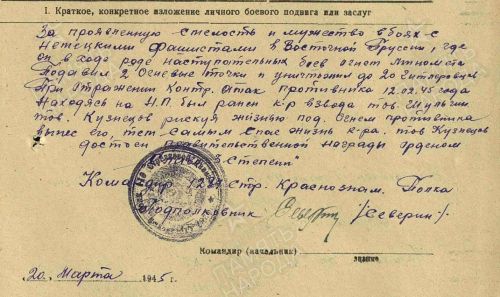 I. Краткое, конкретное изложение личного боевого подвига или заслуг
За проявленную смелость и мужество в боях с
немецкими фашистами в Восточной Пруссии, где
он в ходе наступательных боев огнем миномета
Подавил 2 огневые точки и уничтожил до 20 гитлеровцев
При отражении контр. атак противника 12.02.45 года
Находясь на Н.П. был ранен к-р взвода тов.
тов. Кузнецов рискуя жизнью под. огнем противника
вынес его, тем самым спас жизнь к-ра. тов Кузнецов
достоин правительственной награды орденом
3 степени"
Командир стр. Краснознам. Полка
Подполковник /Северин/.
Командир (начальник)
звание
„20„ Марта 1945г.
ПАМЯТЬ
НАРОДА